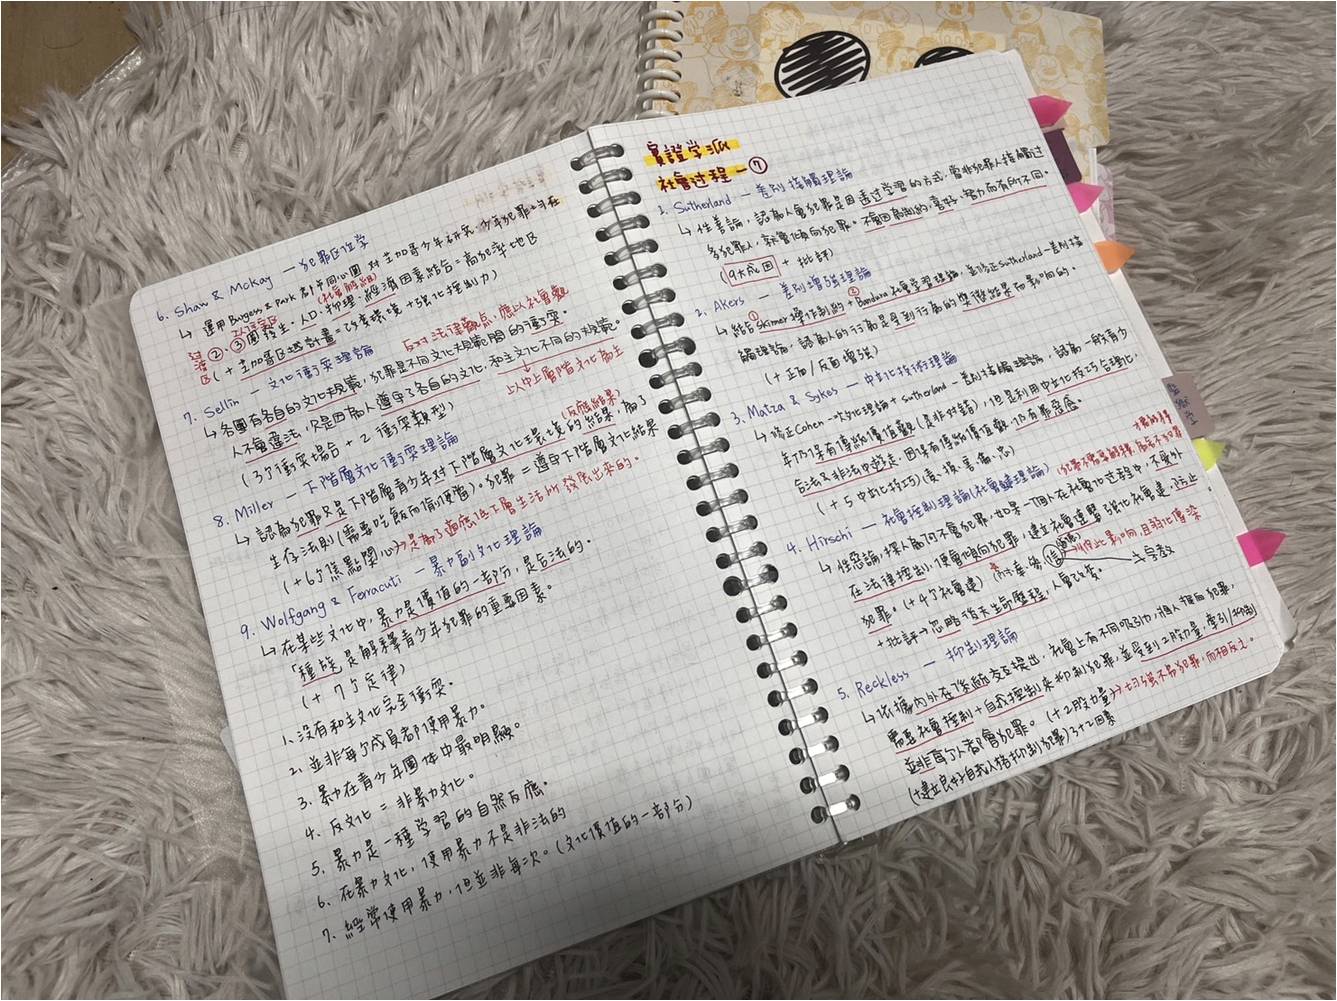 6. Shaw & McKay — 犯罪区位学
↳ 運用 Burgess & Park 的同心圓 对芝加哥少年研究,少年犯罪
(社會解組)
②、③圈發生,人口、物理、經濟因素結合=高犯罪地区
(+ 芝加哥区域計畫=改善環境+強化控制力)
7. Sellin — 文化衝突理論
反对法律觀点,應以社會觀
↳ 各團有各自的文化規範,犯罪是不同文化規範間的衝突。
人不會違法,只是因為人遵守了各自的文化,和主文化不同的規範。
以中上層階文化為主
(3个衝突場合+2衝突類型)
8. Miller — 下階層文化衝突理論
(反應結果)
↳ 認為犯罪是下階層青少年对下階層文化环境的結果,為了
生存法則(需要吃飯而偷便當)。犯罪=遵守下階層文化結果
(+6个焦點關心)→是為了適應低下層生活所發展出來的。
9. Wolfgang & Ferracuti — 暴力副文化理論
↳ 在某些文化中,暴力是價值的一部分,是合法的。
「種族」是解釋青少年犯罪的重要因素。
(+ 7个定律)
1. 沒有和主文化完全衝突。
2. 並非每个成員都使用暴力。
3. 暴力在青少年團体中最明顯。
4. 反文化=非暴力文化。
5. 暴力是一種学習的自然反應。
6. 在暴力文化,使用暴力不是非法的
7. 經常使用暴力,但並非每次。(文化價值的一部分)
實證学派
社會过程—⑦
1. Sutherland — 差別接觸理論
↳ 性善論,認為人會犯罪是因透过学習的方式,當非犯罪人接觸过
多犯罪人,就會傾向犯罪。不會因
(9大成因 + 批評)
2. Akers — 差別增強理論
↳ 結合①Skinner操作制約+②Bandura社會学習理論,並修正Sutherland—差別接
觸理論,認為人的行為是受到行為的獎懲結果而影响的。
(+ 正面/反面增強)
3. Matza & Sykes — 中立化技術理論
↳ 修正Cohen—次文化理論+Sutherland—差別接觸理論,認為一般青少
年仍保有傳統價值觀(是非对錯),但是利用中立化技巧合理化,
合法又非法中遊走,因保有傳統價值觀,仍有罪惡感。
(+ 5中立化技巧)(責、損、害、備、忠)
4. Hirschi — 社會控制理論(社會鍵理論)
↳ 性惡論,探人為何不會犯罪,如果一個人在社會化过程中,不受外
在法律控制,便會傾向犯罪,建立社會連繫、強化社會鍵,防止
犯罪。(+4个社會鍵)
+批評→忽略後天生命歷程,人會改变。
→ 宗教
5. Reckless — 抑制理論
↳ 依據內外在体系交互提出,社會上有不同吸引力,將人推向犯罪,
需要社會控制+自我控制來抑制犯罪,並受到2股力量,牽引/抑制
並非每个人都會犯罪。(+2股力量)→
(+建立良好自我人格抑制犯罪)3+2因素